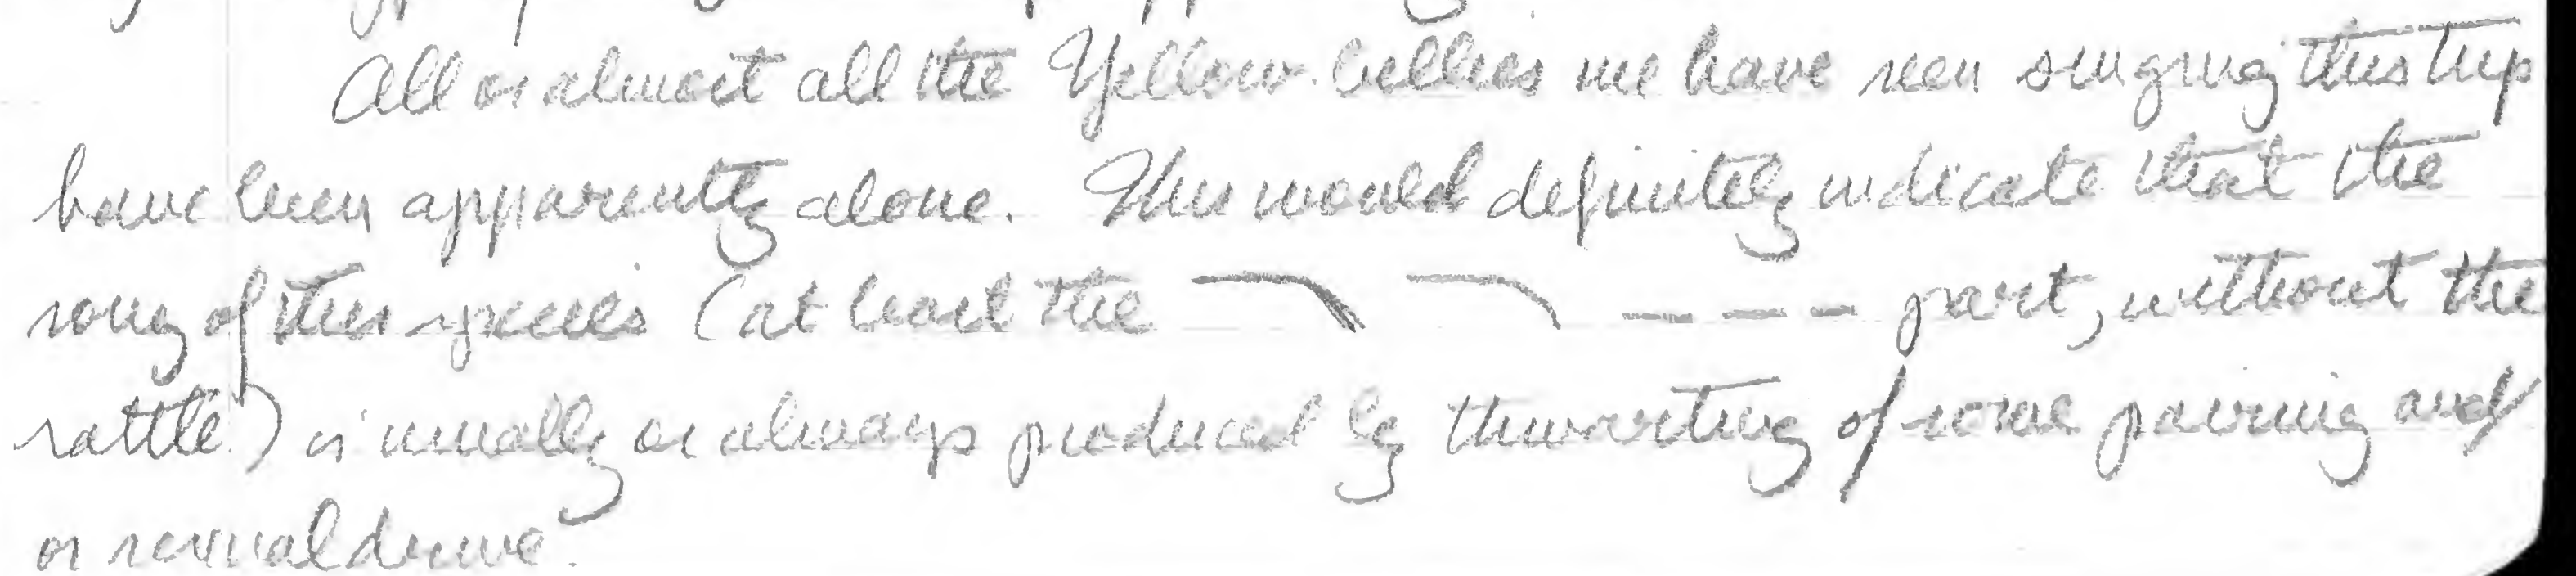 All or almost all the Yellow-bellies we have seen singing this trip
have been apparently alone. This would definitely indicate that the
song of this species (at least the — — — part, without the
rattle) is usually or always produced by thwarting of some pairing and/
or sexual drive.